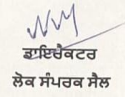 ਡਾਇਰੈਕਟਰ
ਲੋਕ ਸੰਪਰਕ ਸੈਲ